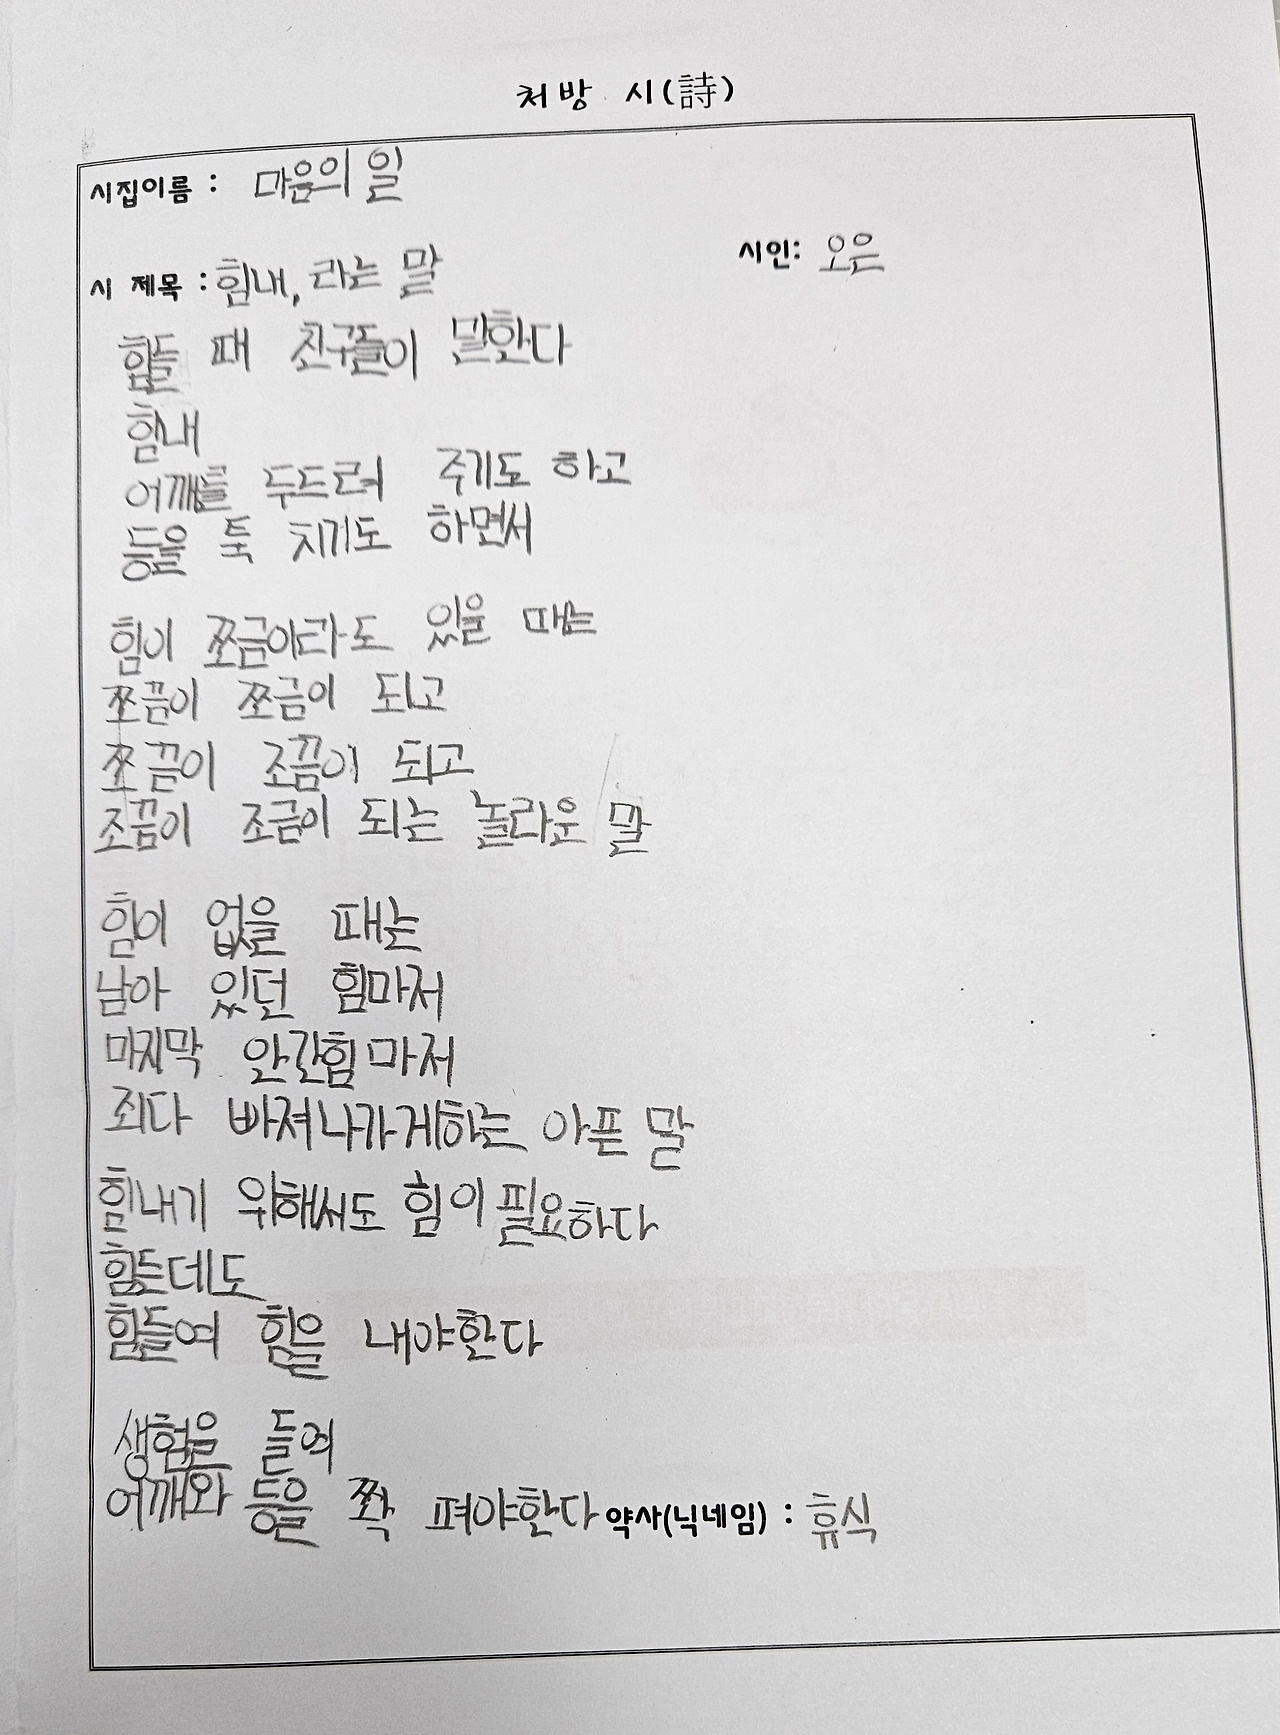 처방 시(詩)
시집이름 : 마음의 일
시인: 오은
시 제목 : 힘내, 라는 말
힘들 때 친구들이 말한다
힘내
어깨를 두드려 주기도 하고
등을 툭 치기도 하면서
힘이 쪼금이라도 있을 때는
쪼끔이 쪼금이 되고
쪼끔이 조끔이 되고
조끔이 조금이 되는 놀라운 말
힘이 없을 때는
남아 있던 힘마저
마지막 안간힘마저
죄다 빠져나가게하는 아픈 말
힘내기 위해서도 힘이 필요하다
힘든데도
힘들여 힘을 내야한다
생힘을 들여
어깨와 등을 쫙 펴야한다
약사(닉네임) : 휴식